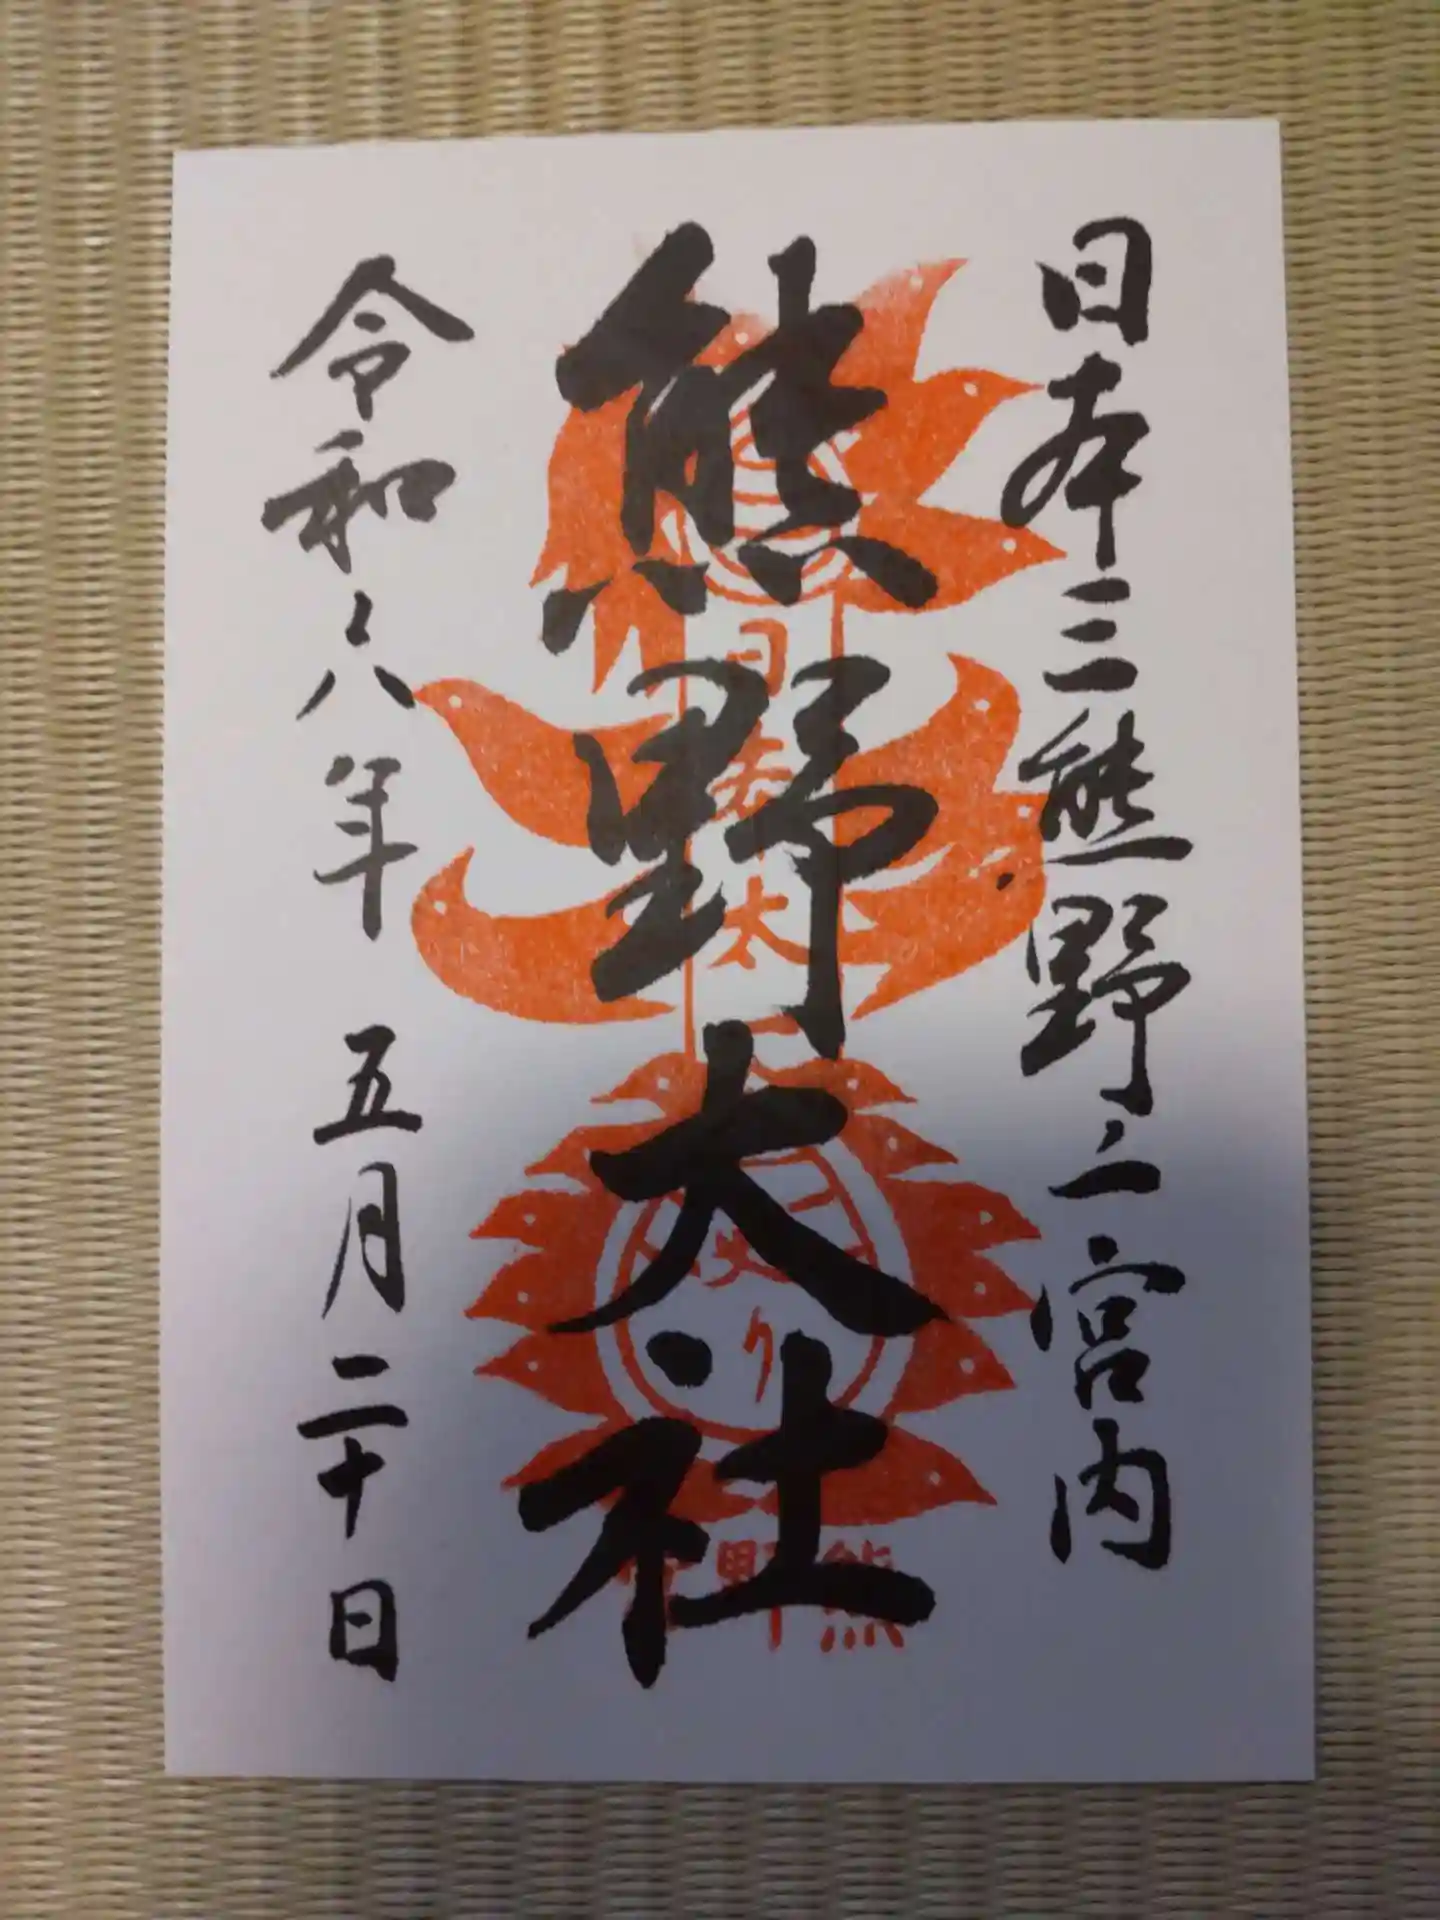 日本三熊野之一宮内
熊野大社
令和六年 五月二十日
熊野